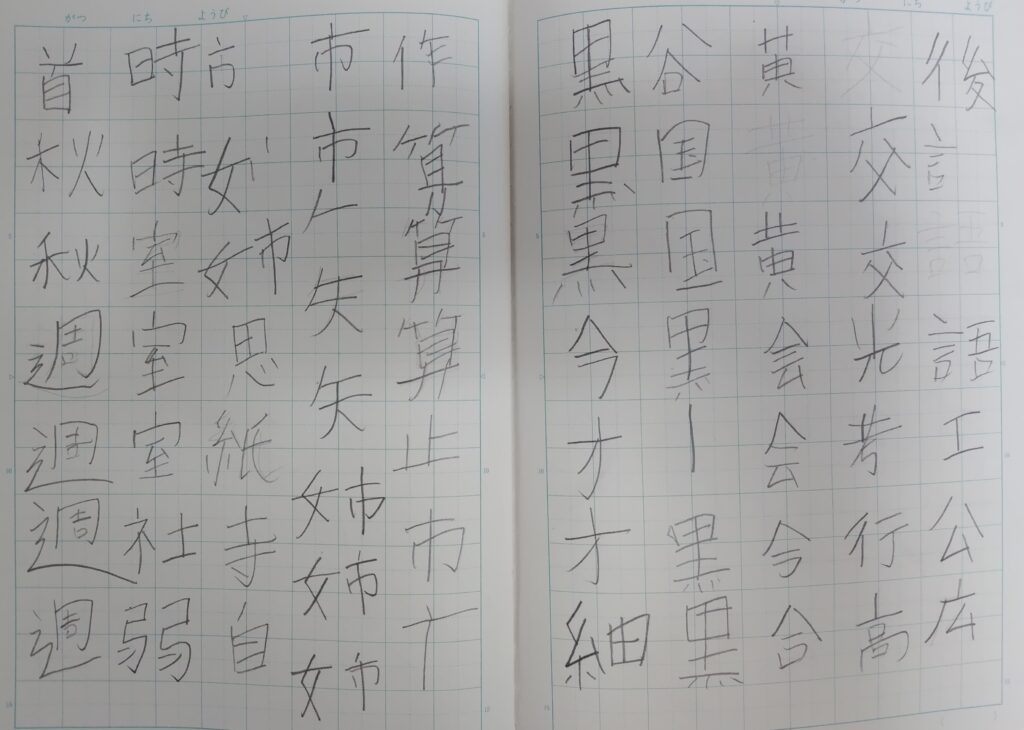 がつ にち ようび
後言語語工公広
交交交光考行高
黄黄黄会会今合
谷国国黒黒黒
黒黒黒今才才細
がつ にち ようび
作算算算止市
市市矢矢姉姉姉
姉思紙寺自
時時室室室社弱
首秋秋週週週週